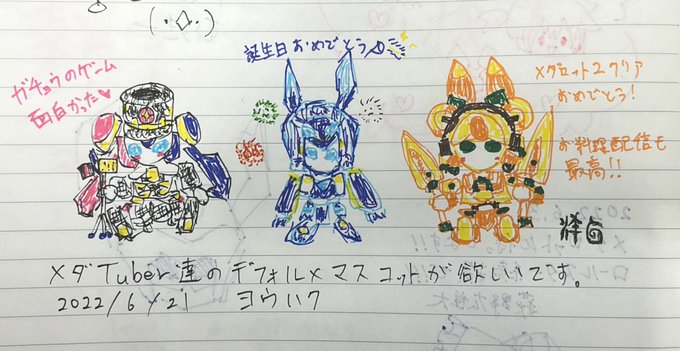 ガチョウのゲーム
面白かった♥
誕生日おめでとう
メダロット2クリア
おめでとう!
お料理配信も
最高!!
メダTuber達のデフォルメマスコットが欲しいです。
2022/6/21 ヨウハク